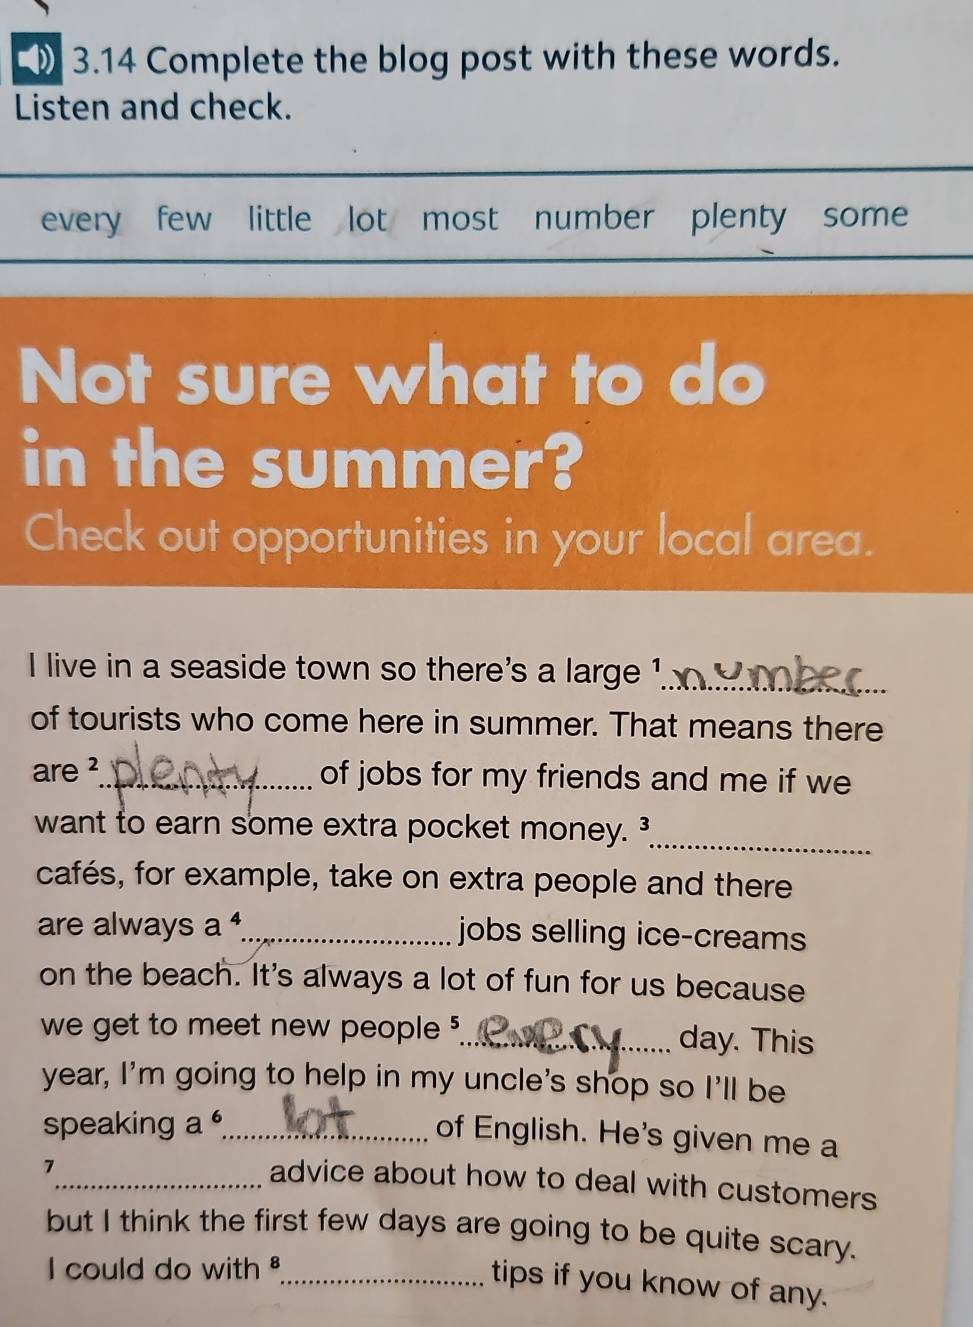 3.14 Complete the blog post with these words.
Listen and check.
every few little lot most number plenty some
Not sure what to do
in the summer?
Check out opportunities in your local area.
I live in a seaside town so there's a large ¹ number
of tourists who come here in summer. That means there
are ² plenty of jobs for my friends and me if we
want to earn some extra pocket money. ³
cafés, for example, take on extra people and there
are always a ⁴ jobs selling ice-creams
on the beach. It's always a lot of fun for us because
we get to meet new people ⁵ every day. This
year, I'm going to help in my uncle's shop so I'll be
speaking a ⁶ lot of English. He's given me a
⁷ advice about how to deal with customers
but I think the first few days are going to be quite scary.
I could do with ⁸ tips if you know of any.